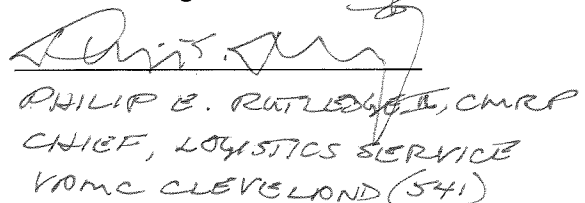 PHILIP E. RUTLEDGE II, CMRP
CHIEF, LOGISTICS SERVICE
VAMC CLEVELAND (541)